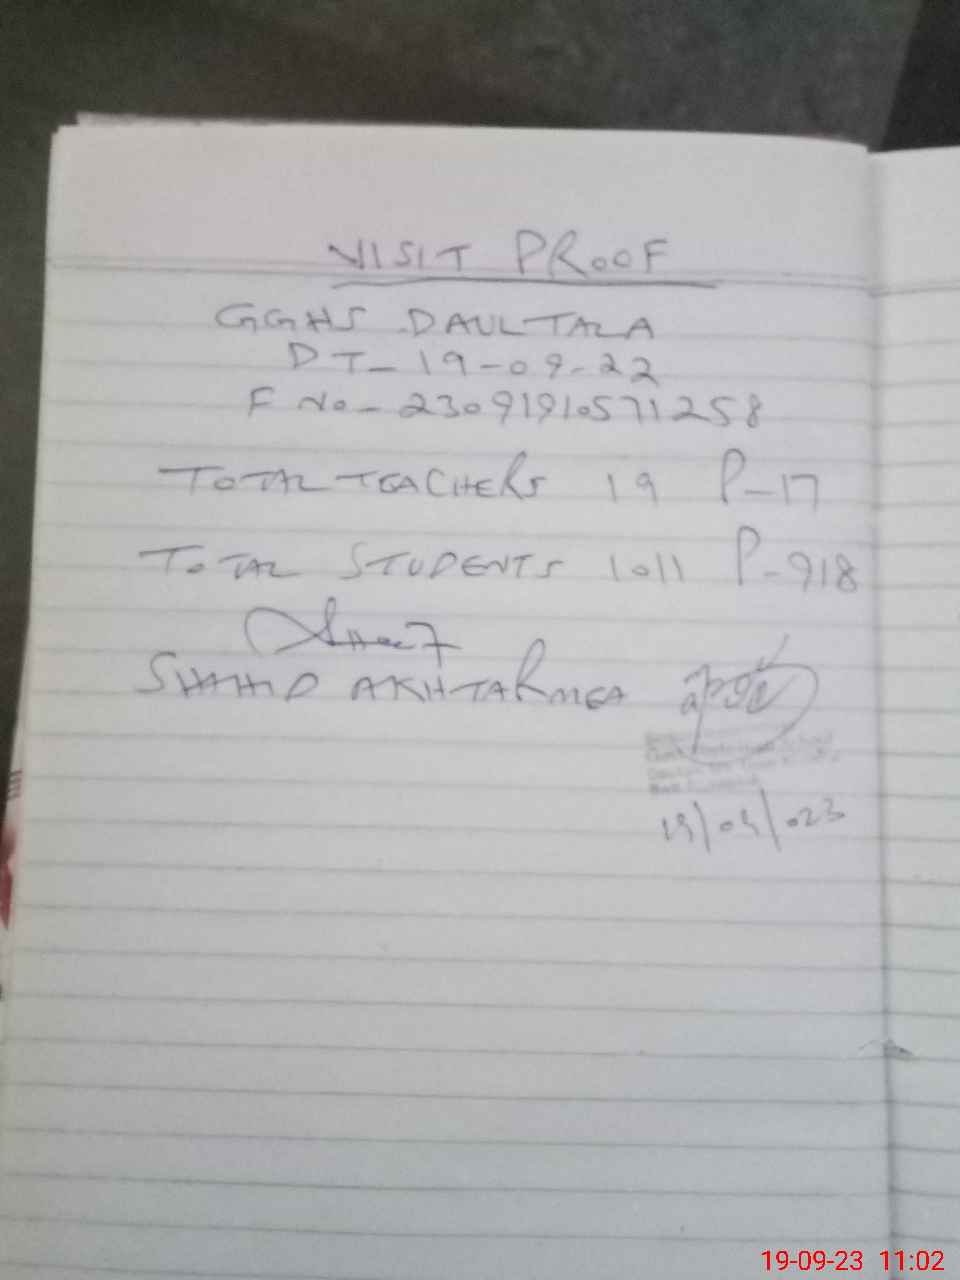 VISIT PROOF
GGHS DAULTALA
DT- 19-09-22
F No- 23091910571258
TOTAL TEACHERS 19 P-17
TOTAL STUDENTS 1011 P-918
SHAHID AKHTAR MEA
19/09/023
19-09-23 11:02